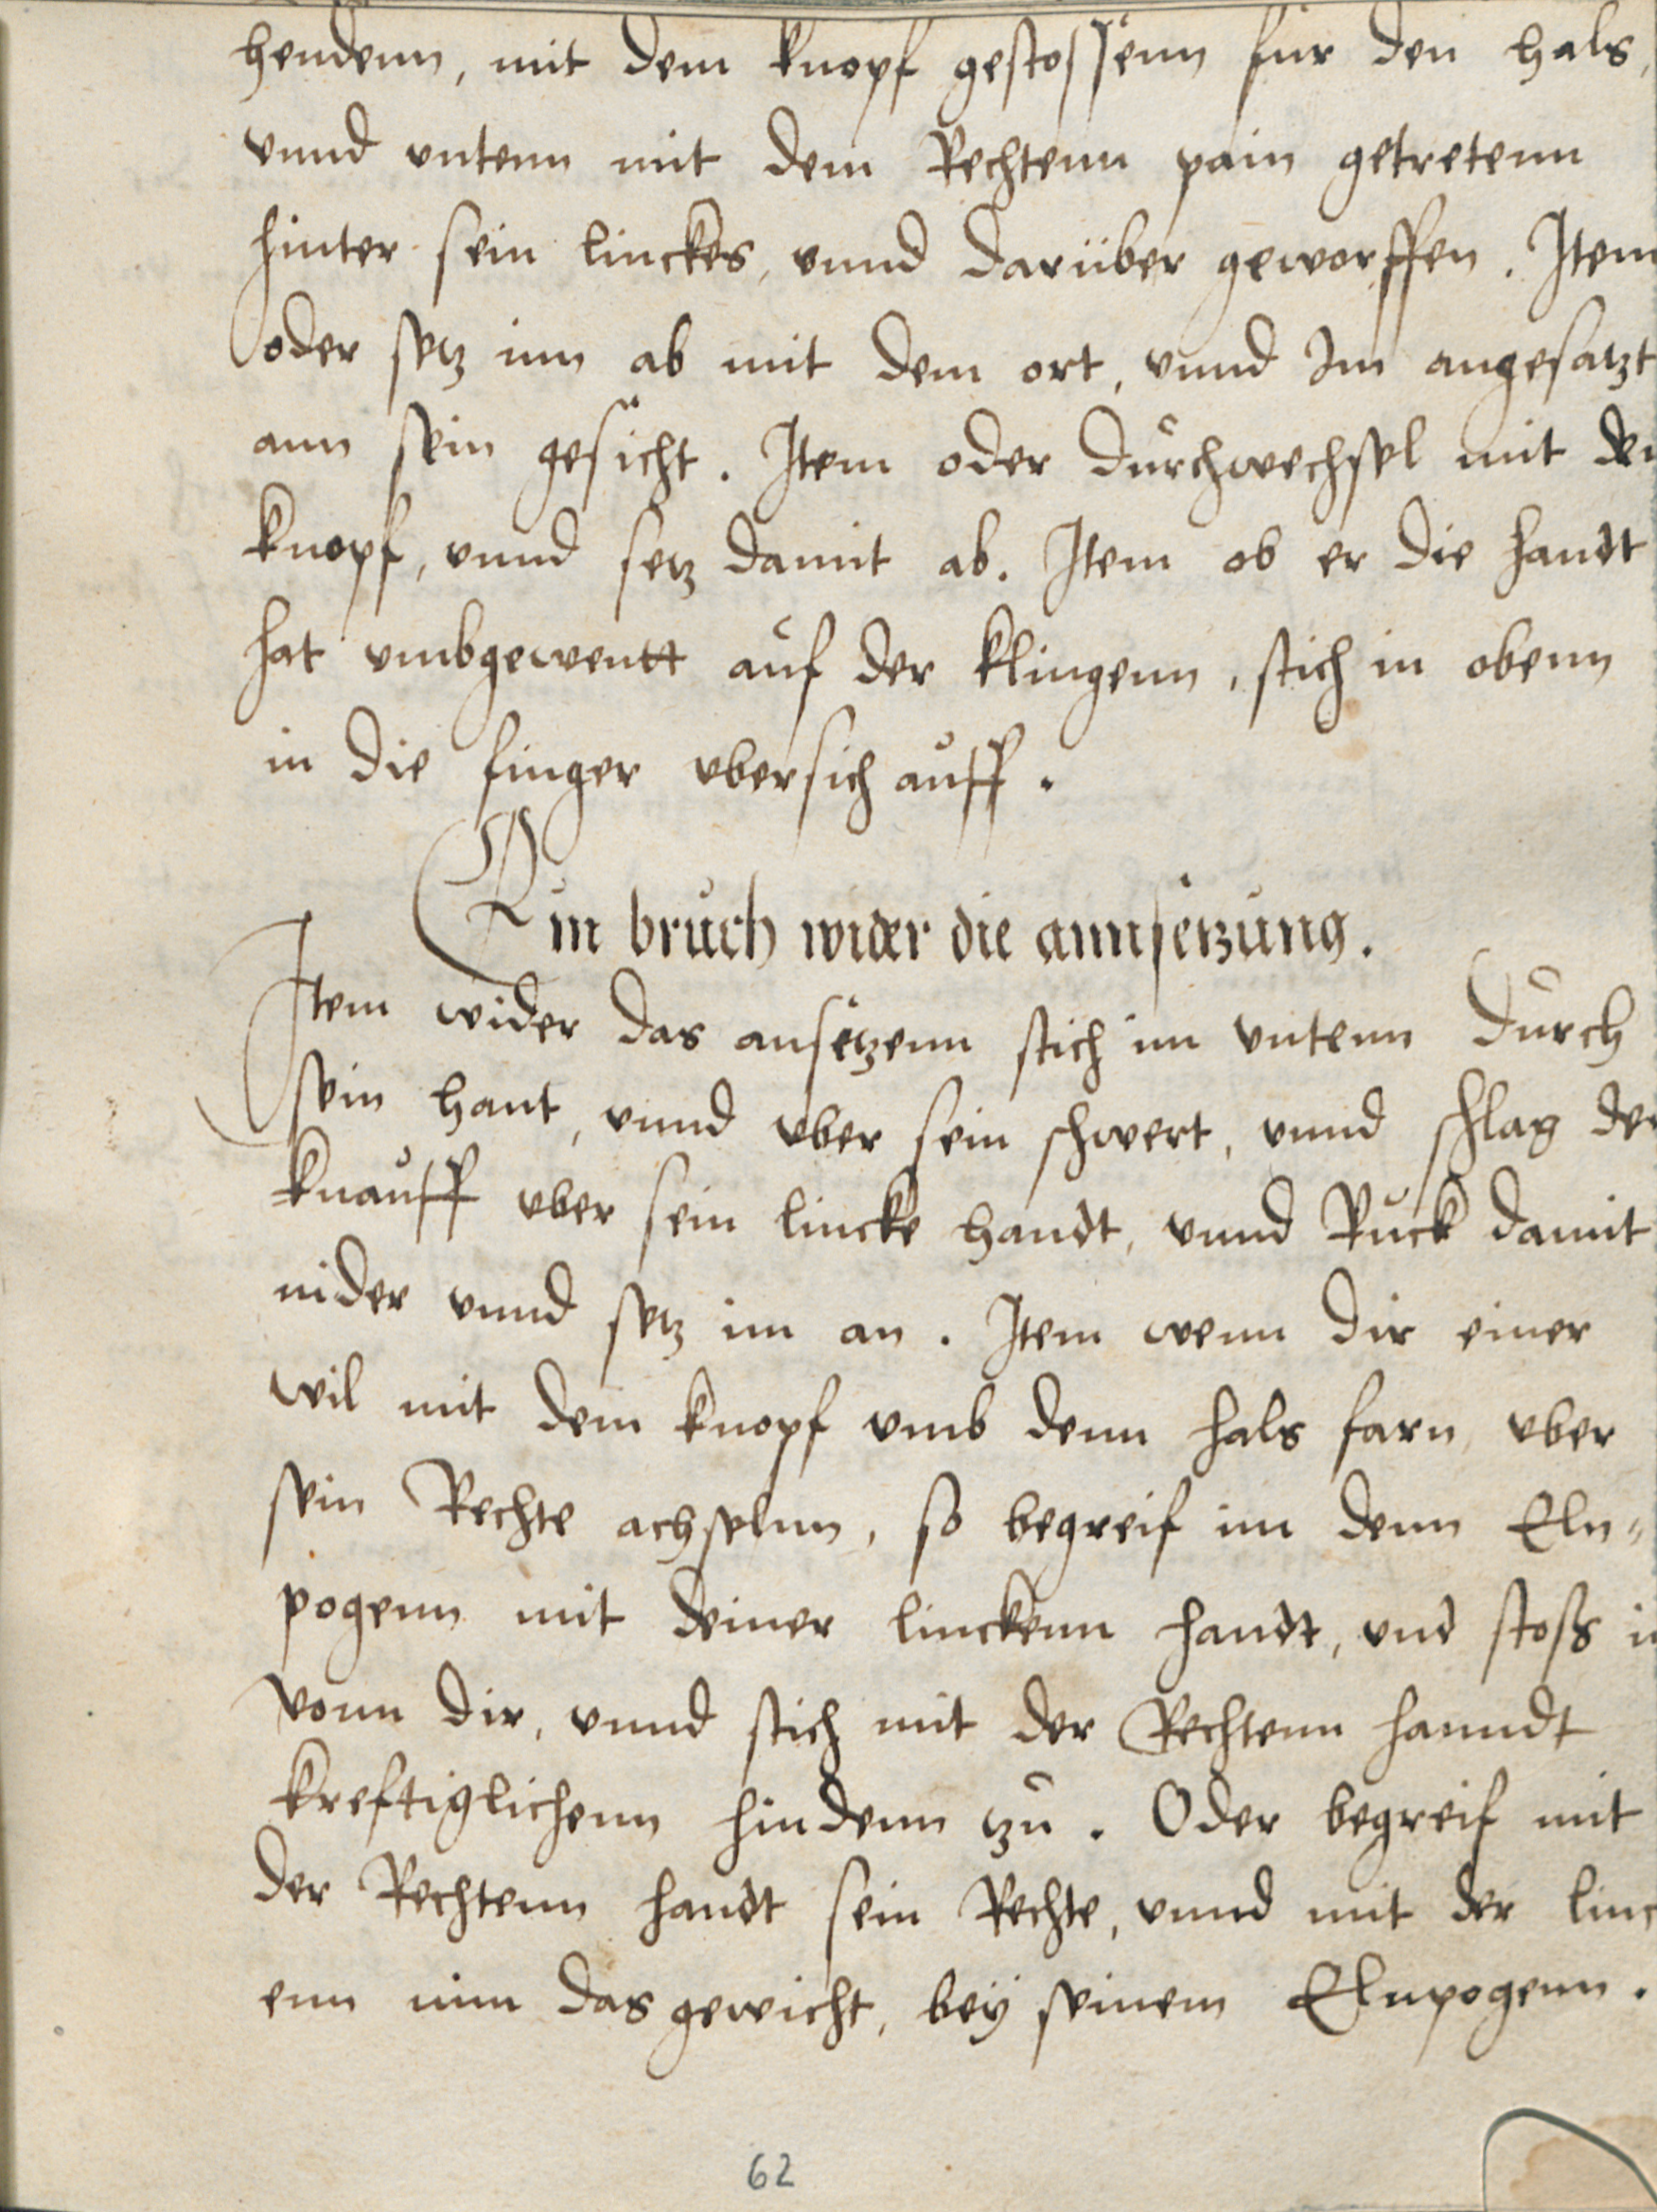 hendenn, mit dem knopf gestossenn für den hals,
vnnd vntenn mit dem Rechtenn pain getretenn
hinter sein linckes, vnnd darüber geworffen. Item
oder setz inn ab mit dem ort, vnnd Im angesatzt
ann sein gesicht. Item oder durchwechsel mit de
knopf, vnnd setz damit ab. Item ob er die handt
hat vmbgewentt auf der klingenn, stich in obenn
in die finger vbersich auff.
Ein bruch wider die annsetzung.
Item wider das ansetzenn stich im vntenn durch
sein hant, vnnd vber sein schwert, vnnd schlag de
knauff vber sein lincke handt, vnnd Ruck damit
nider vnnd setz im an. Item wenn dir einer
wil mit dem knopf vmb denn hals farn, vber
sein Rechte achselnn, so begreif im denn Eln-
pogenn mit deiner linckenn handt, vnd stoß i
vonn dir, vnnd stich mit der Rechtenn hanndt
kreftiglichenn hindenn zu. Oder begreif mit
der Rechtenn handt sein Rechte, vnnd mit der linc
enn nim das gewicht, bey seinem Elnpogenn.
62